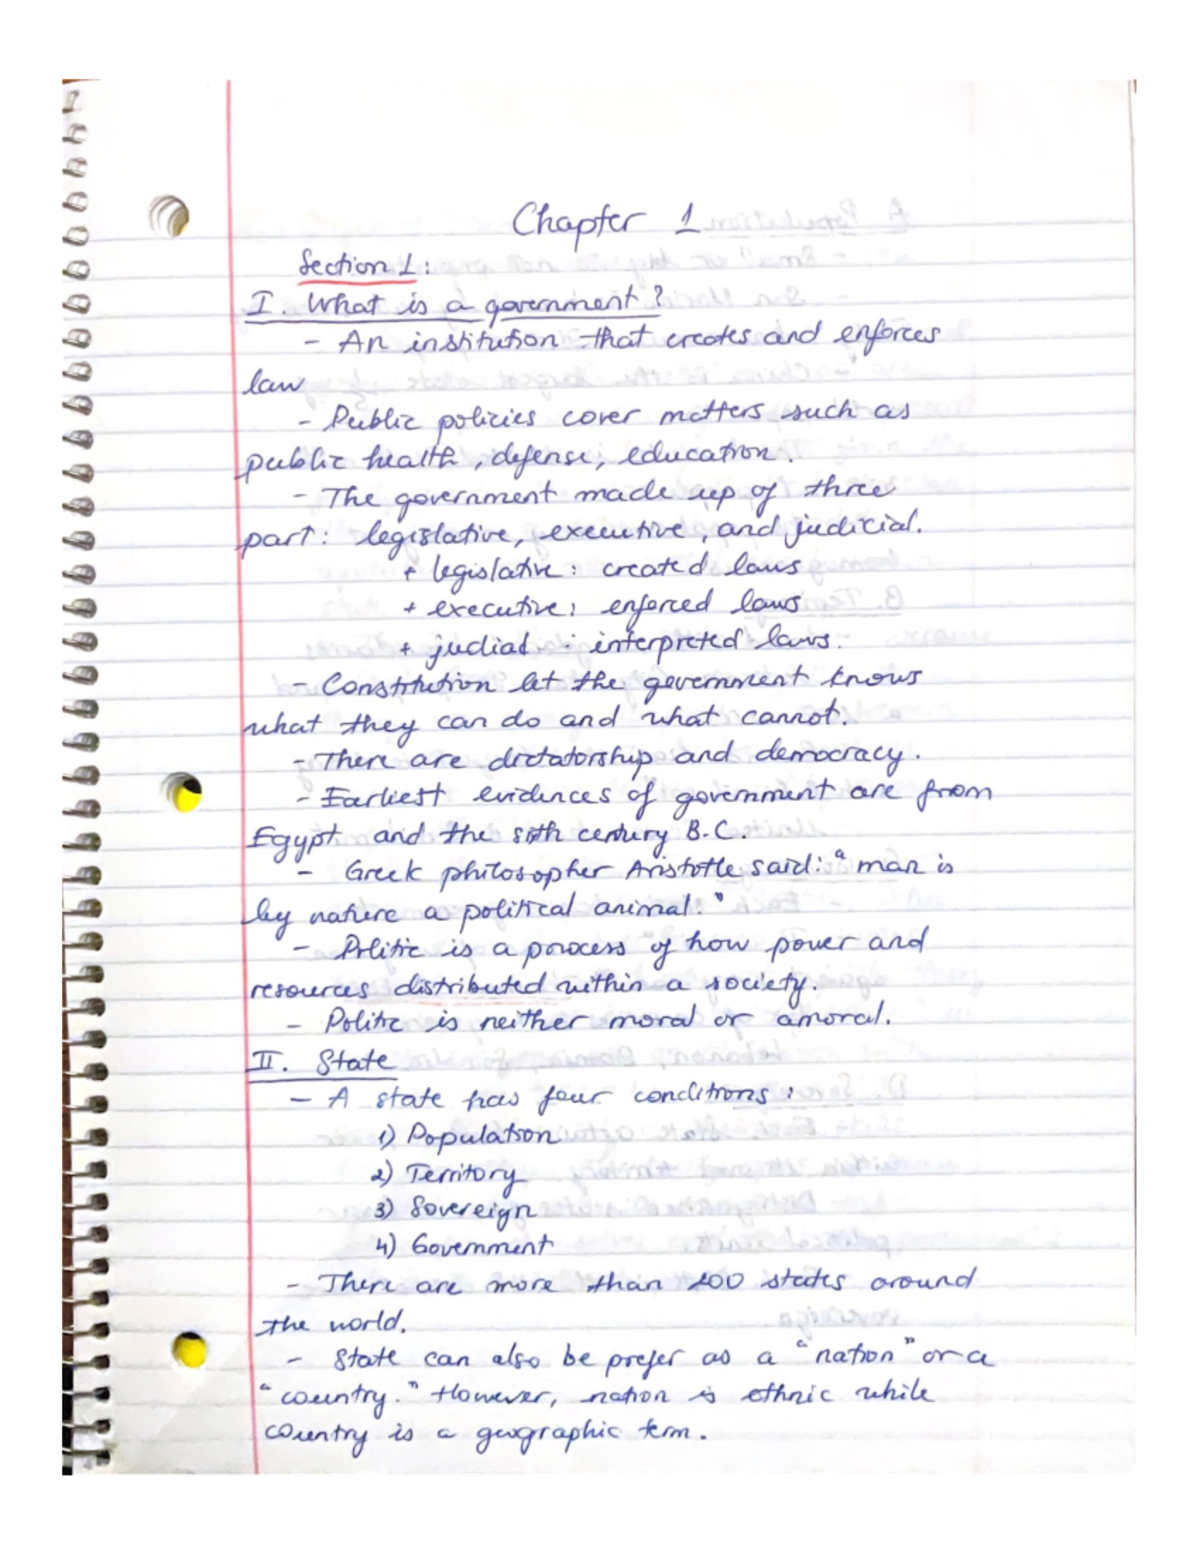 Chapter 1
Section 1:
I. What is a government?
- An institution that creates and enforces
law
- Public policies cover matters such as
public health, defense, education.
- The government made up of three
part: legislative, executive, and judicial.
+ legislative: created laws
+ executive: enforced laws
+ judicial: interpreted laws.
- Constitution let the government knows
what they can do and what cannot.
- There are dictatorship and democracy.
- Earliest evidences of government are from
Egypt and the sixth century B.C.
- Greek philosopher Aristotle said: "man is
by nature a political animal."
- Politic is a process of how power and
resources distributed within a society.
- Politic is neither moral or amoral.
II. State
- A state has four conditions:
1) Population
2) Territory
3) Sovereign
4) Government
- There are more than 200 states around
the world.
- State can also be prefer as a "nation" or a
"country." However, nation is ethnic while
country is a geographic term.